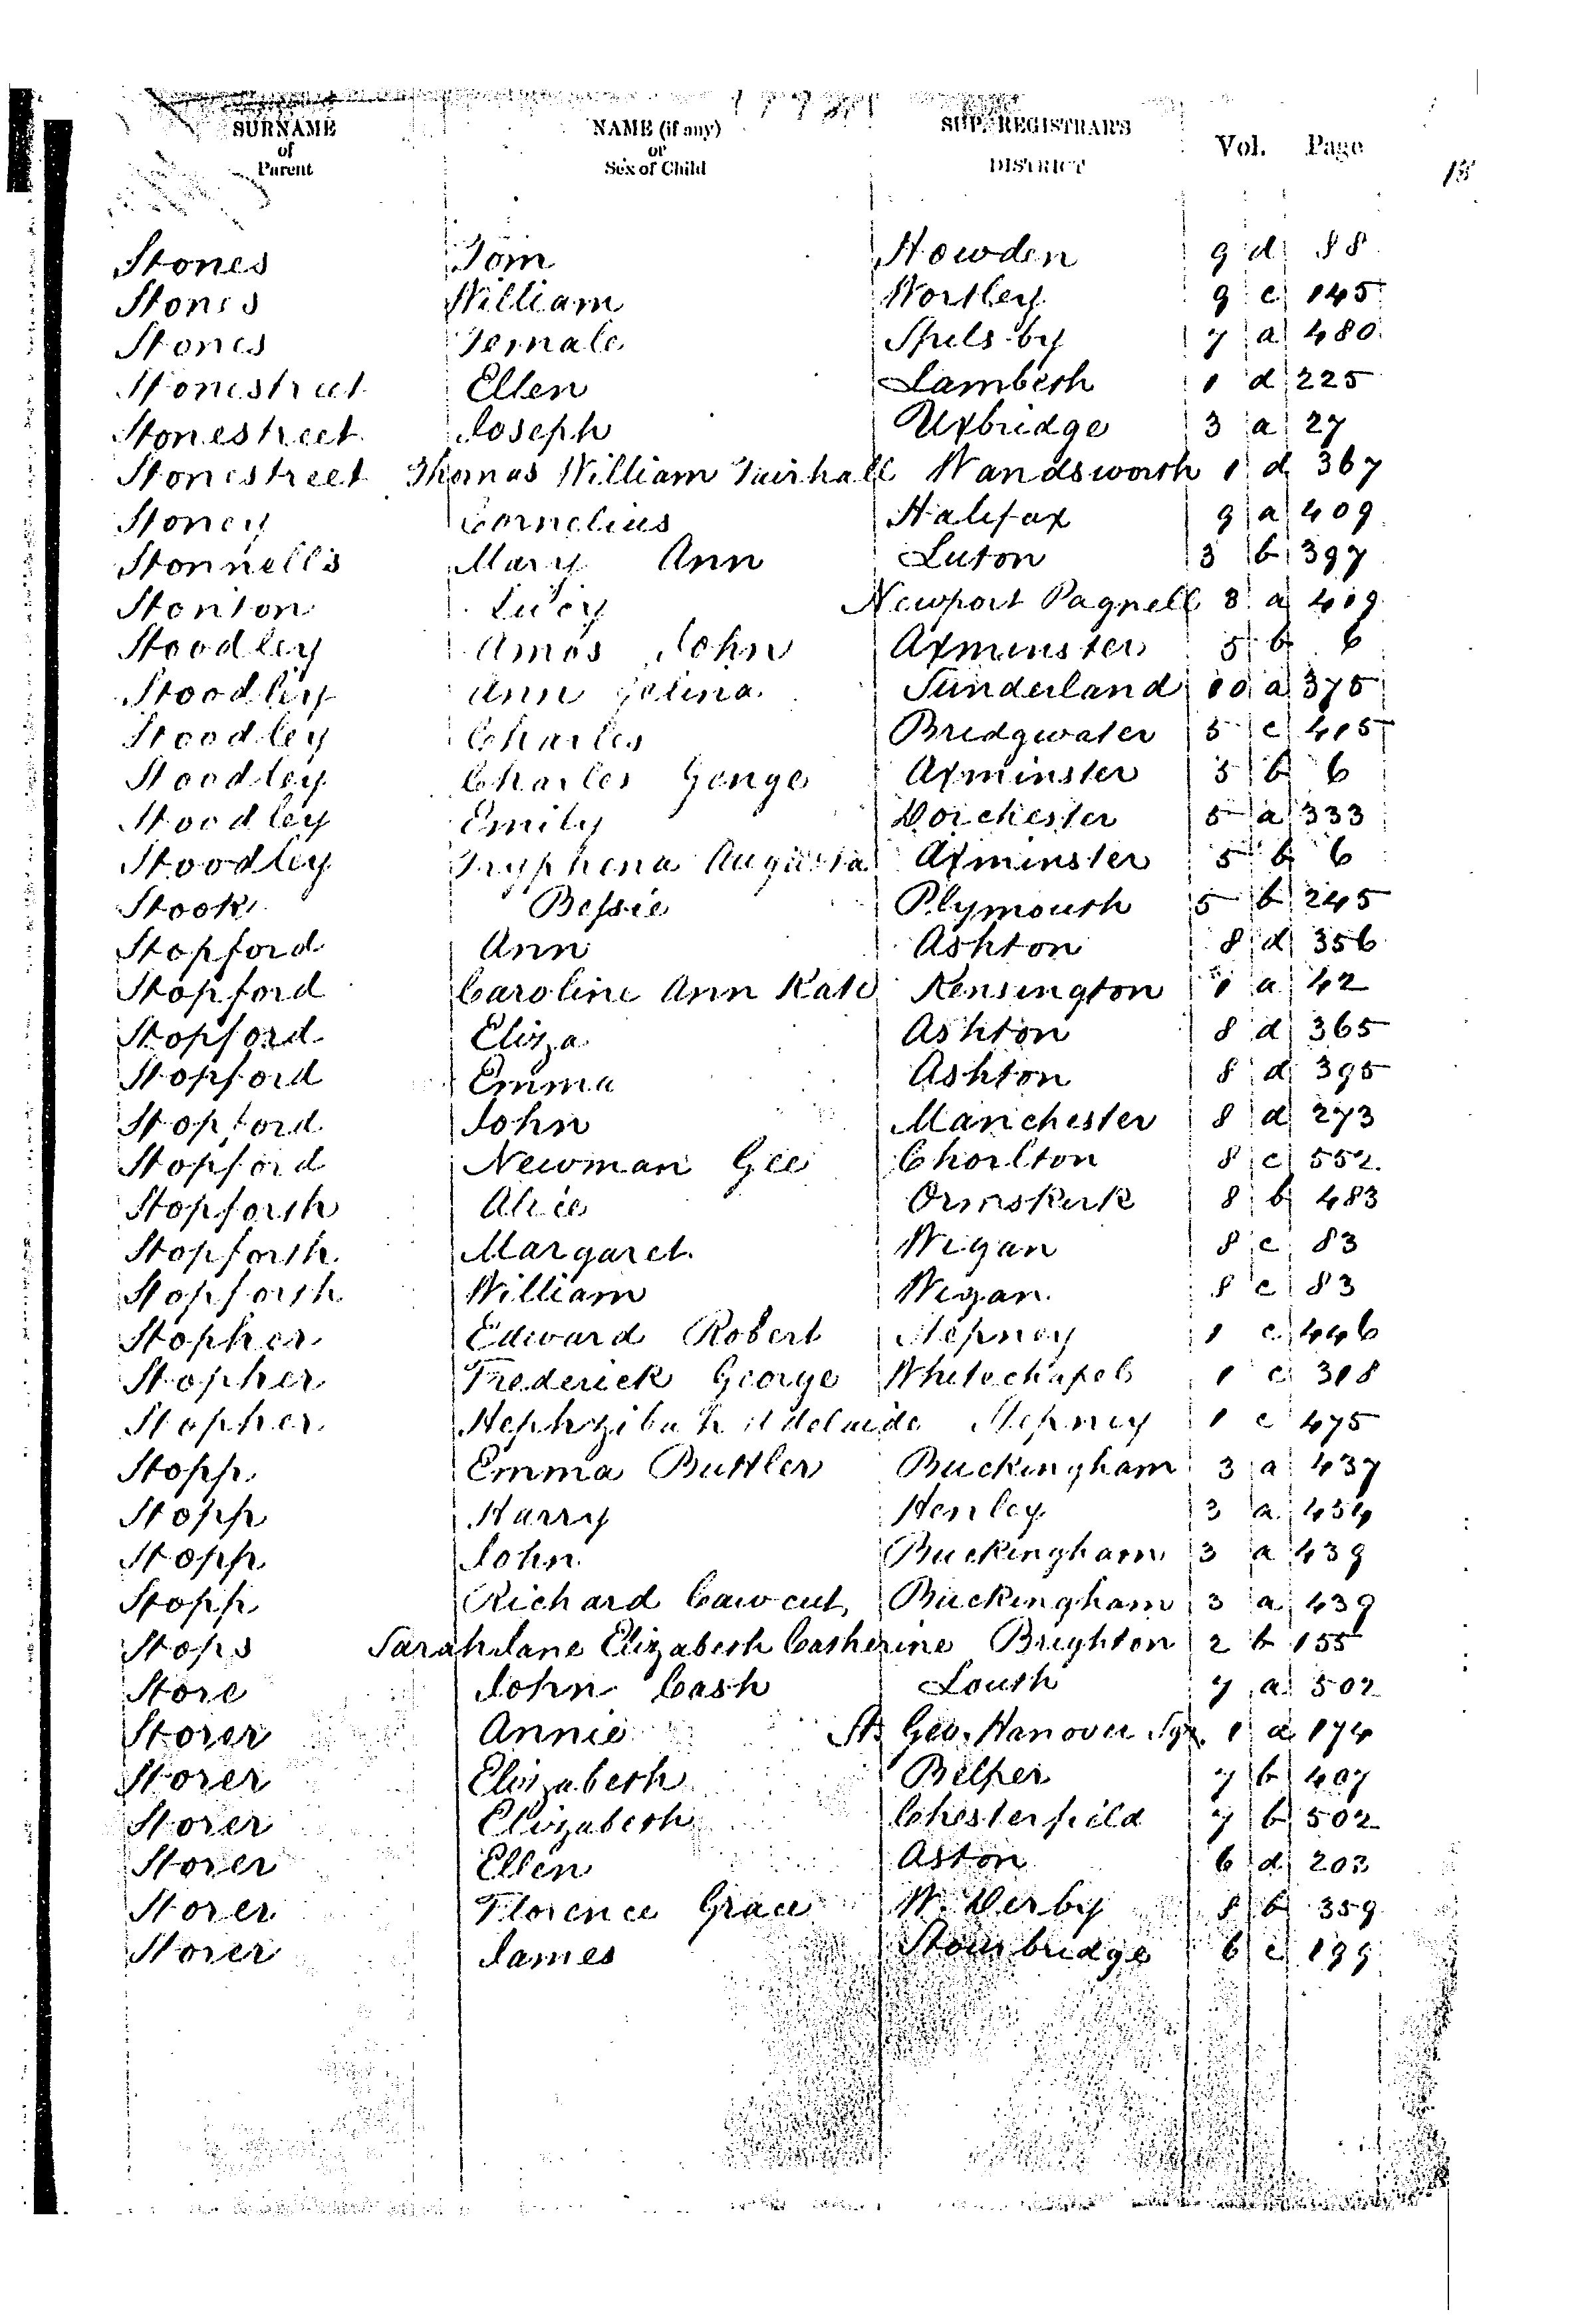 SURNAME of Parent NAME (if any) or Sex of Child SUP. REGISTRAR'S DISTRICT Vol. Page
Stones Tom Howden 9 d 88
Stones William Wortley 9 c 145
Stones Female Spilsby 7 a 480
Stonestreet Ellen Lambeth 1 d 225
Stonestreet Joseph Uxbridge 3 a 27
Stonestreet Thomas William Fairhall Wandsworth 1 d 367
Stoney Cornelius Halifax 9 a 409
Stonnells Mary Ann Luton 3 b 397
Stonton Lucy Newport Pagnell 3 a 409
Stoodley Amos John Axminster 5 b 6
Stoodley Ann Selina Sunderland 10 a 375
Stoodley Charles Bridgwater 5 c 415
Stoodley Charles Genge Axminster 5 b 6
Stoodley Emily Dorchester 5 a 333
Stoodley Tryphena Augusta Axminster 5 b 6
Stook Bessie Plymouth 5 b 245
Stopford Ann Ashton 8 d 356
Stopford Caroline Ann Kate Kensington 1 a 42
Stopford Eliza Ashton 8 d 365
Stopford Emma Ashton 8 d 395
Stopford John Manchester 8 d 273
Stopford Newman Gee Chorlton 8 c 552
Stopforth Alice Ormskirk 8 b 483
Stopforth Margaret Wigan 8 c 83
Stopforth William Wigan 8 c 83
Stopher Edward Robert Stepney 1 c 446
Stopher Frederick George Whitechapel 1 c 318
Stopher Hephzibah Adelaide Stepney 1 c 475
Stopp Emma Buttler Buckingham 3 a 437
Stopp Harry Henley 3 a 454
Stopp John Buckingham 3 a 439
Stopp Richard Cawcut Buckingham 3 a 439
Stops Sarah Jane Elizabeth Catherine Brighton 2 b 155
Store John Cash Louth 7 a 502
Storer Annie St Geo. Hanover Sqr. 1 a 174
Storer Elizabeth Belper 7 b 407
Storer Elizabeth Chesterfield 7 b 502
Storer Ellen Aston 6 d 203
Storer Florence Grace W. Derby 8 b 359
Storer James Stourbridge 6 c 199